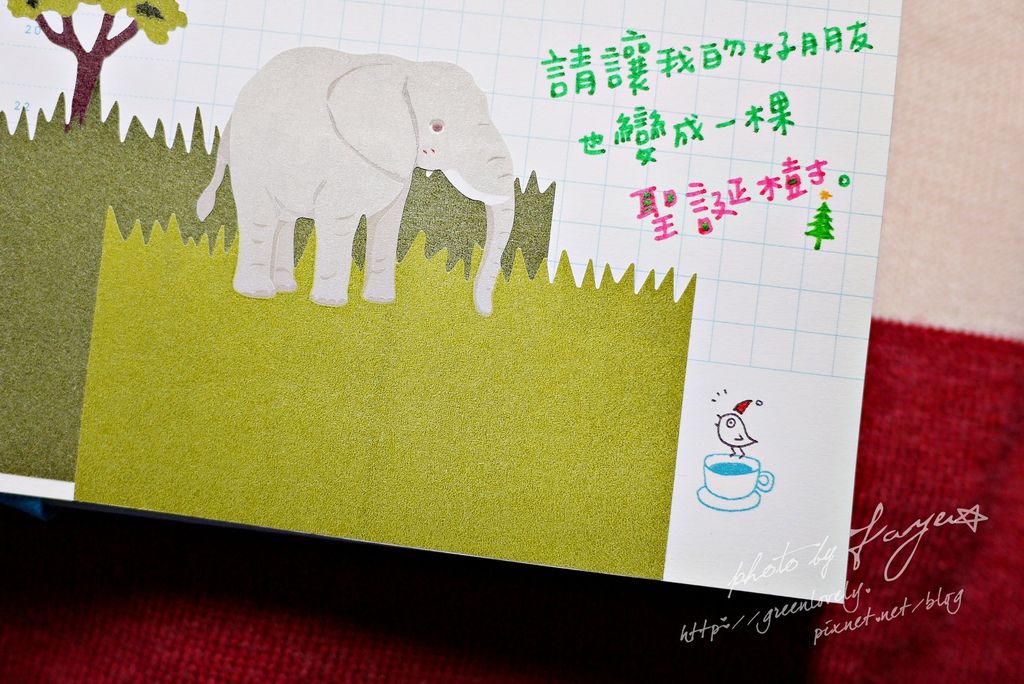 20
22
請讓我的好朋友
也變成一棵
聖誕樹。
photo by Faye
http://greenlovely.
pixnet.net/blog